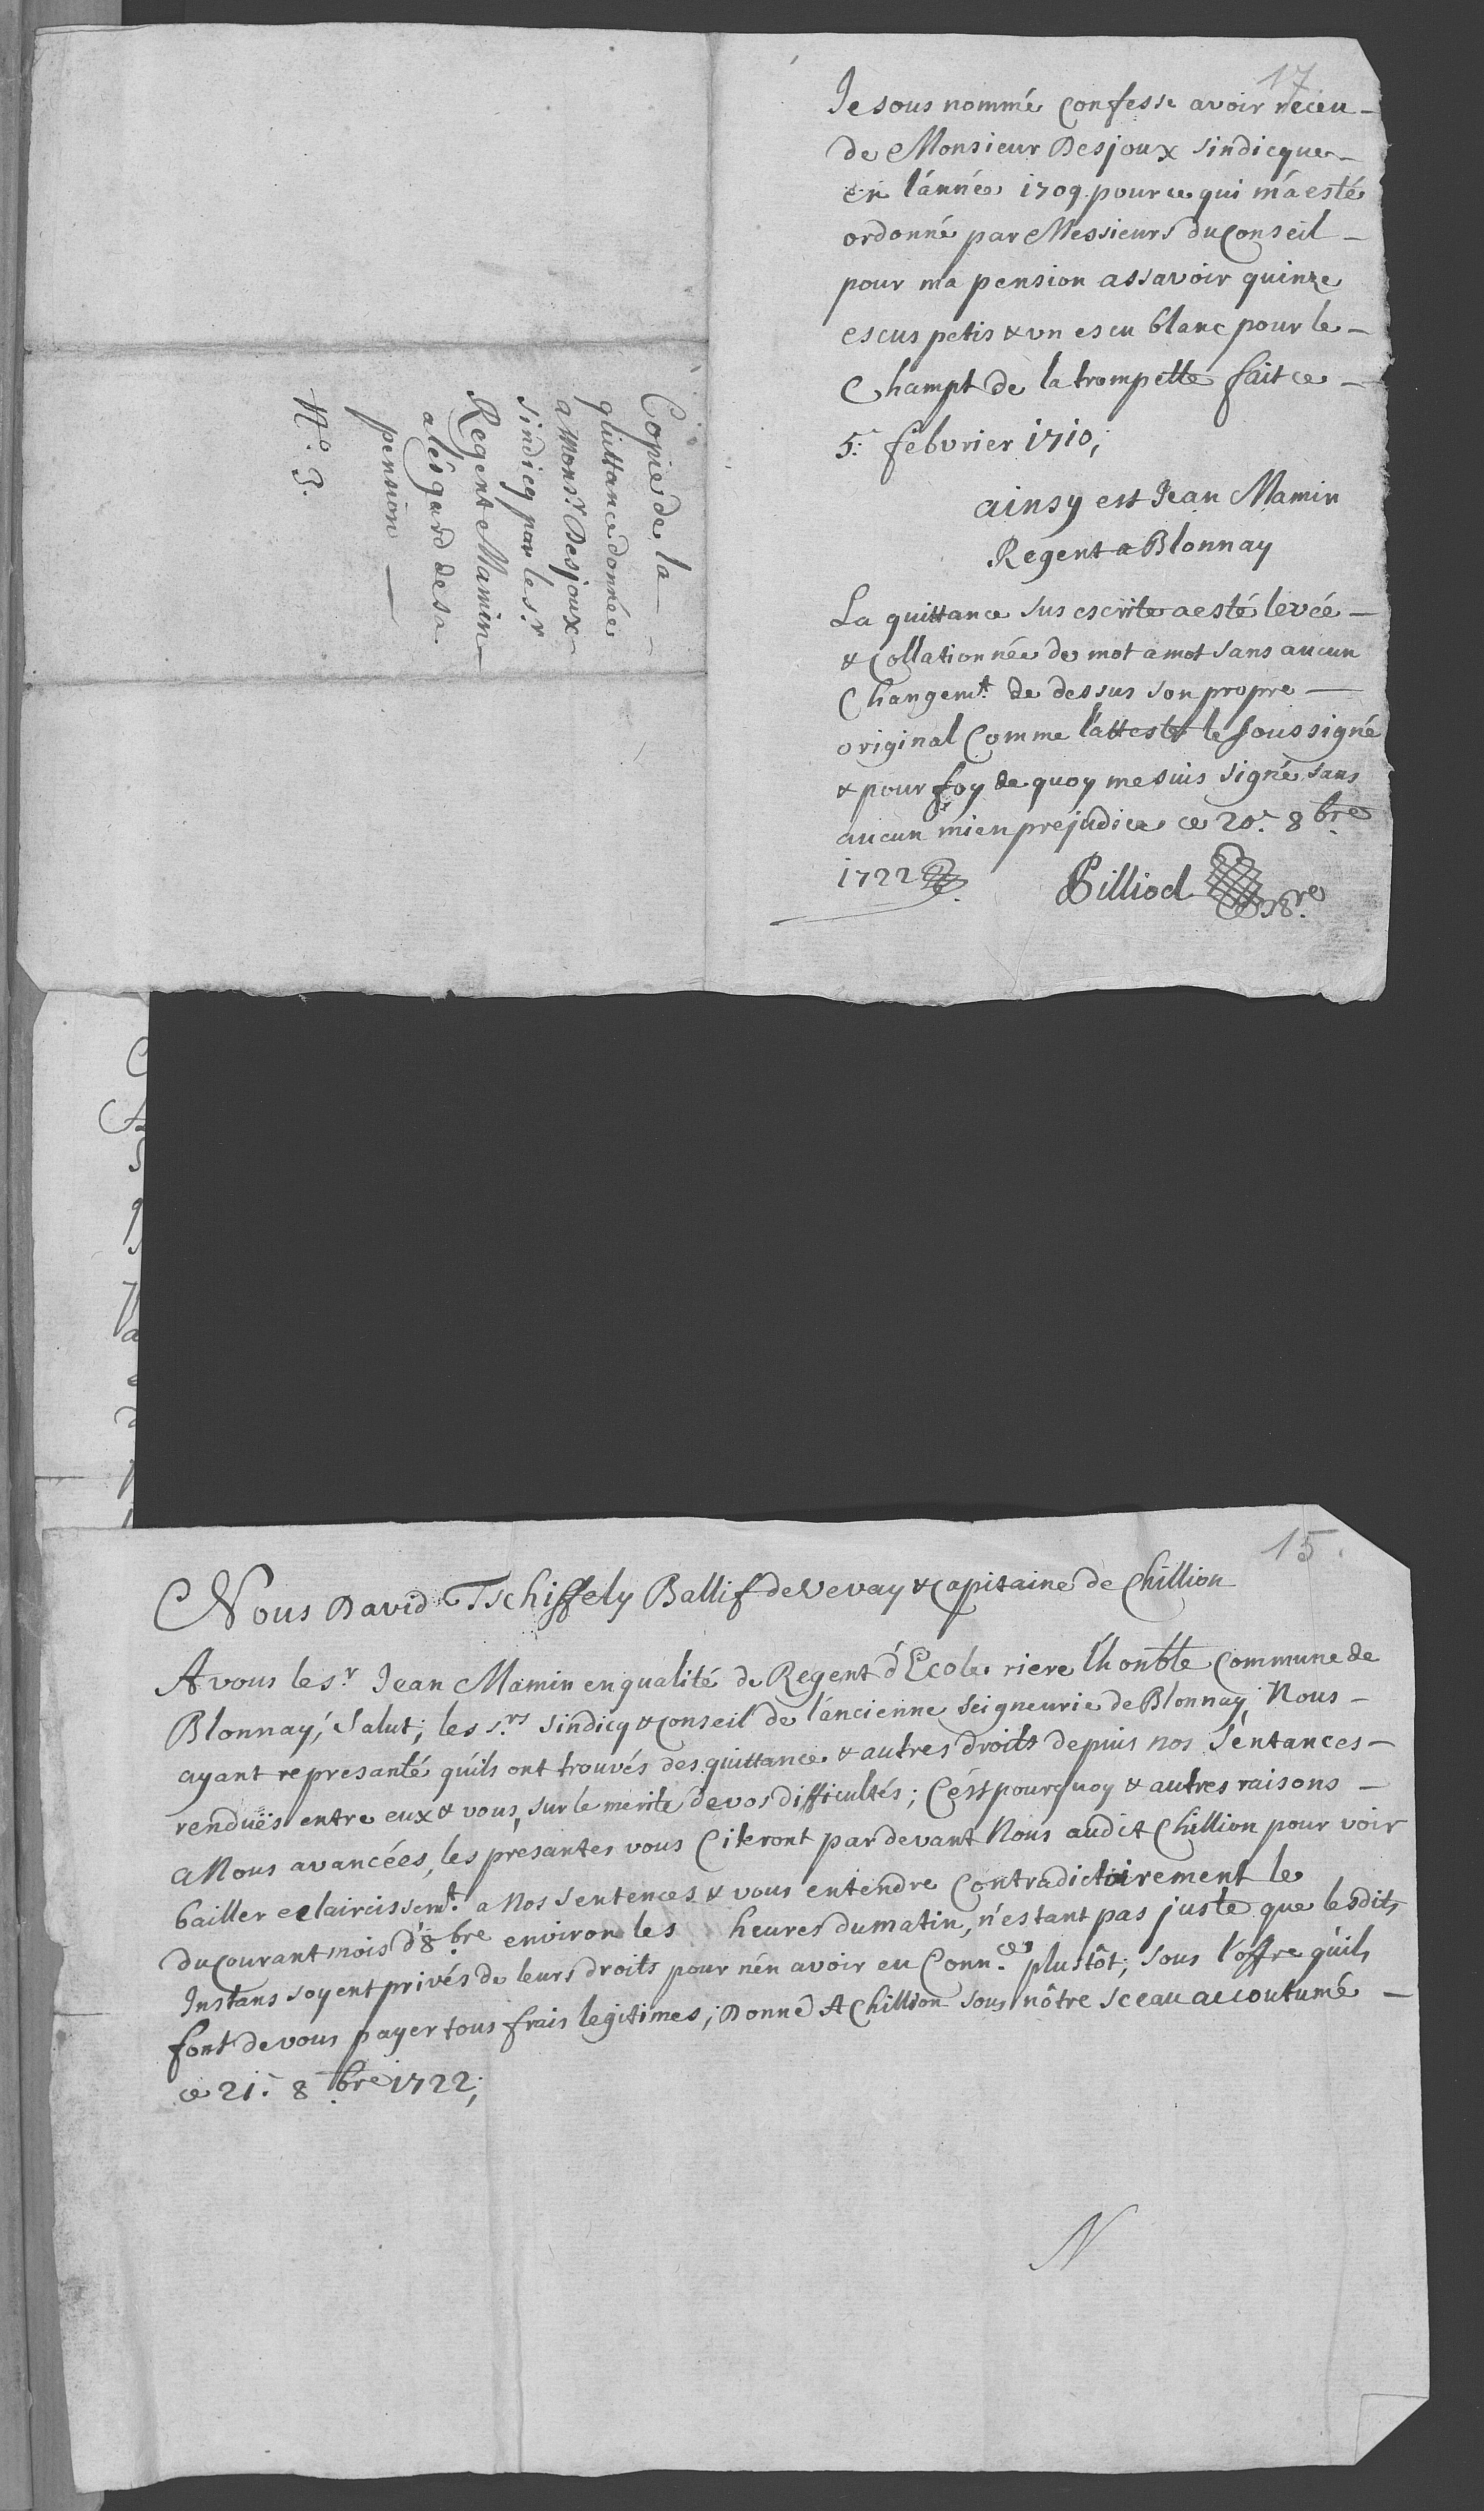 17
Je sous nommé Confesse avoir receu
de Monsieur Desjoux sindicque
en l'année 1709 pour ce qui m'a esté
ordonné par Messieurs du Conseil
pour ma pension assavoir quinze
escus petis & un escu blanc pour le
Champt de la trompette fait ce
5.e febvrier 1710;
ainsy est Jean Mamin
Regent a Blonnay
La quittance sus escrite a esté levée
& Collationnée de mot a mot sans aucun
Changem.t de dessus son propre
original Comme l'atteste le soussigné
& pour foy de quoy me suis signé sans
aucun mien prejudice ce 20.e 8.bre
1722
Pilliod
Copie de la
quittance donnée
a Mons.r Desjoux
sindicq par le s.r
Regent Mamin
a l'esgard de sa
pension
N.o 3.
15.
Nous David Tschiffely Ballif de Vevay & Capitaine de Chillion
A vous le s.r Jean Mamin en qualité de Regent d'Ecole riere l'honble Commune de
Blonnay, Salut; les s.rs sindicq & Conseil de l'ancienne seigneurie de Blonnay, Nous
ayant represanté qu'ils ont trouvés des quittance & autres droits depuis nos sentances
renduës entre eux & vous, sur le merite de vos difficultés; C'est pourquoy & autres raisons
a Nous avancées, les presantes vous Citeront par devant Nous audit Chillion pour voir
bailler eclaircissem.t a Nos sentences & vous entendre Contradictoirement le
du courant mois d'8.bre environ les heures du matin, n'estant pas juste que lesdits
Instans soyent privés de leurs droits pour n'en avoir eu Conn.ce plustôt; sous l'offre qu'ils
font de vous payer tous frais legitimes; Donné A Chillion sous nôtre sceau accoutumé
ce 21.e 8.bre 1722;
N